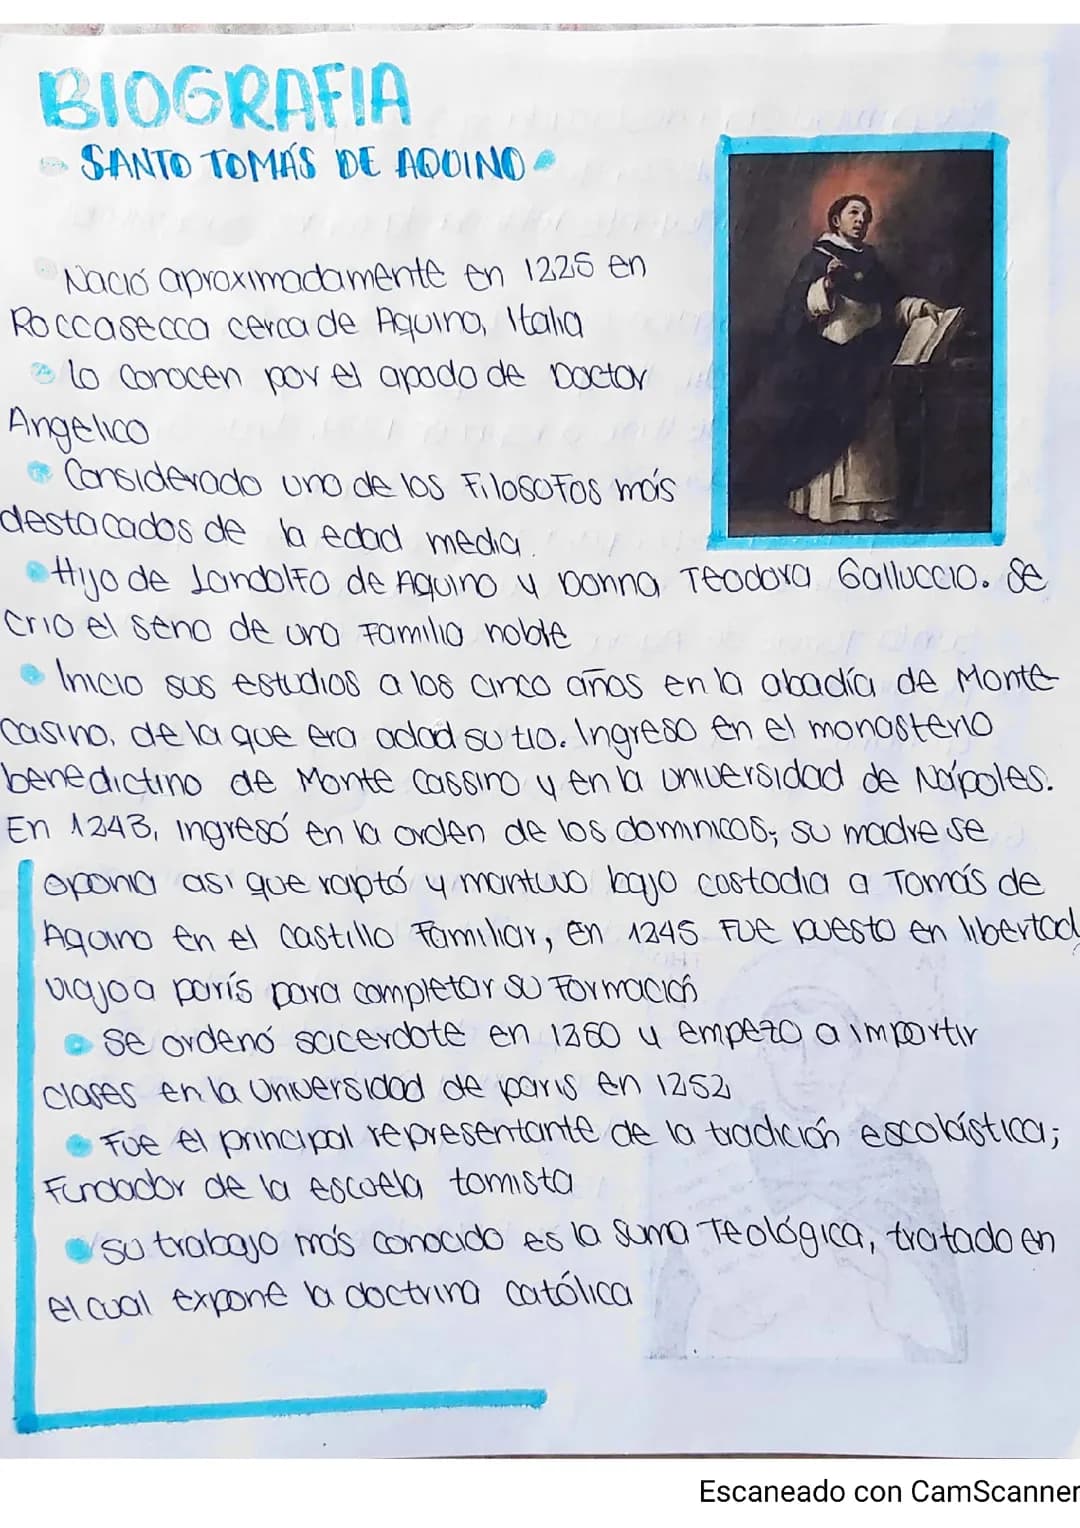 BIOGRAFIA
SANTO TOMÁS DE AQUINO
Nació aproximadamente en 1225 en
Roccasecca cerca de Aquino, Italia
lo conocen por el apodo de Doctor
Angelico
Considerado uno de los Filosofos más
destacados de la edad media.
Hijo de Landolfo de Aquino y Donna Teodora Galluccio. Se
crio el seno de una familia noble
Inicio sus estudios a los cinco años en la abadía de Monte
Casino, de la que era adad su tio. Ingreso en el monasterio
benedictino de Monte Cassino y en la universidad de Nápoles.
En 1243, ingresó en la orden de los dominicos; su madre se
oponia asi que raptó y mantuvo bajo costodia a Tomás de
Aquino en el castillo Familiar, en 1245 Fue puesto en libertad
viajo a parís para completar su Formación
Se ordenó sacerdote en 1260 y empezo a impartir
clases en la Universidad de paris en 1252
Fue el principal representante de la tradición escolástica;
Fundador de la escuela tomista
su trabajo más conocido es la Suma Teológica, tratado en
el cual expone la doctrina católica
Escaneado con CamScanner